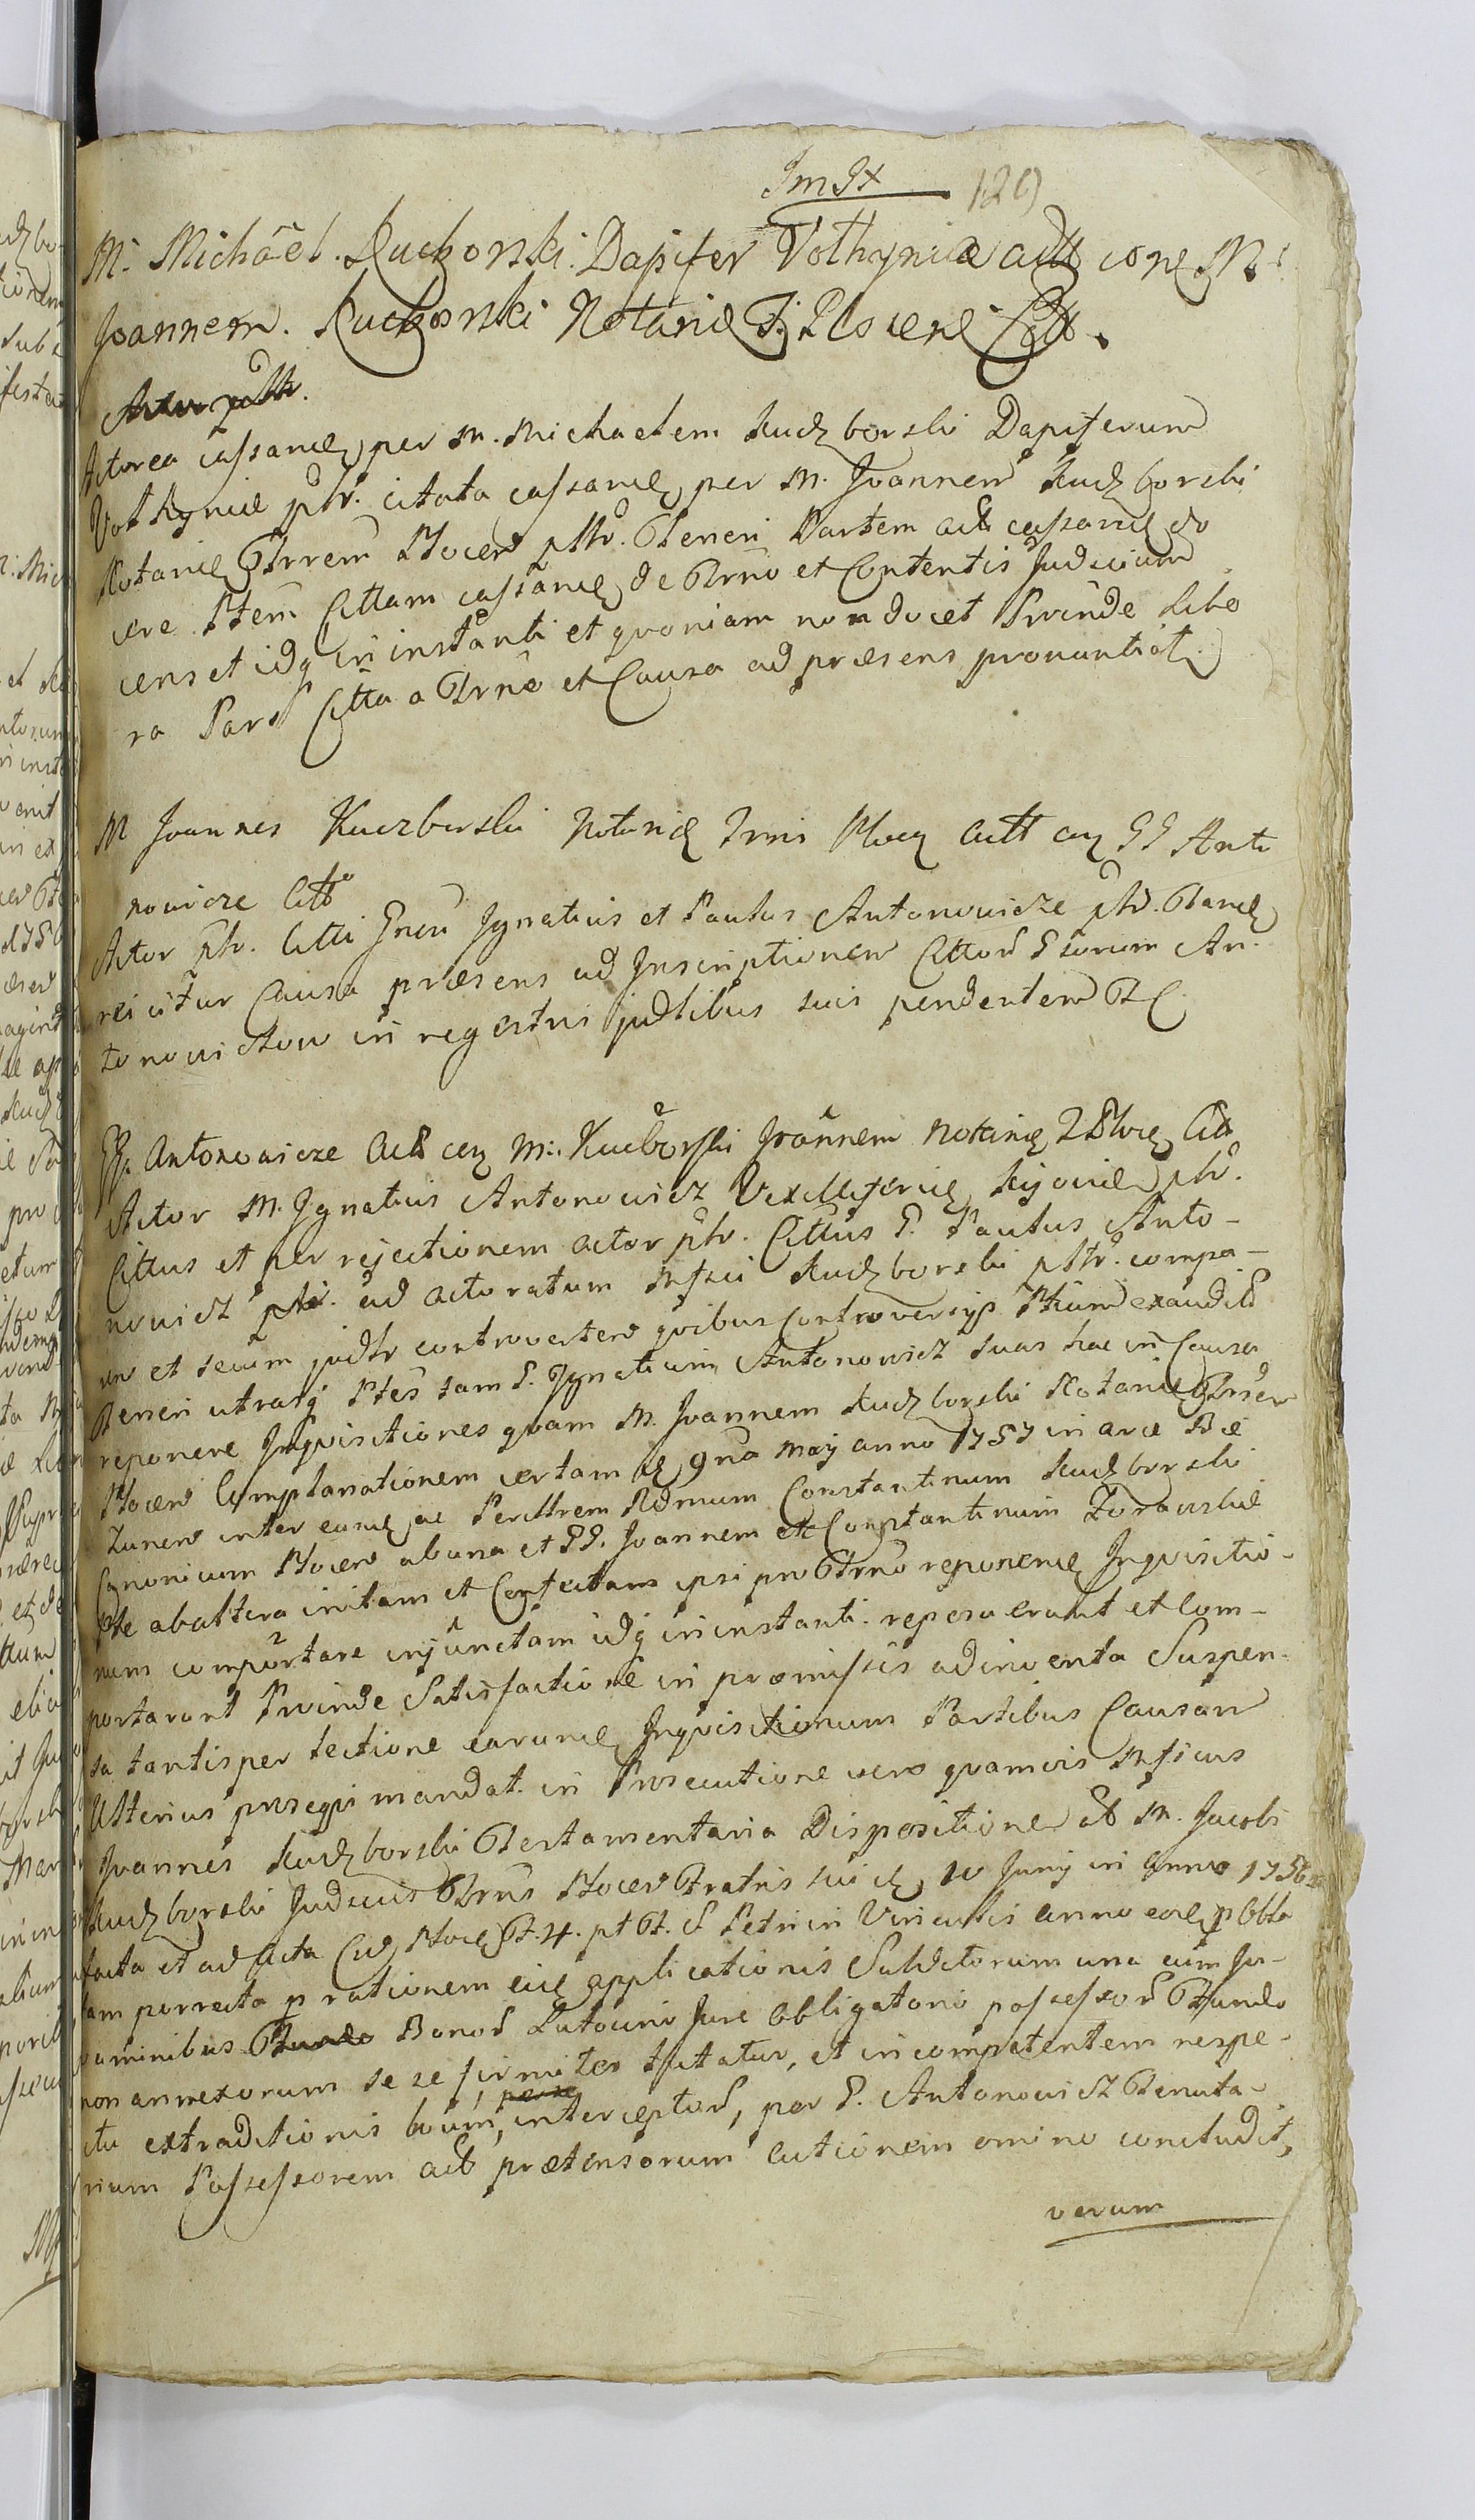 Im Ix 129
M. Michaël Kuczborski Dapifer Volhyniæ act con M.
Joannem Kuczborski Notariũ Plocenẽ Citt.
Actor
Actorea cassandę per M. Michaelem Kuczborski Dapiferum
Volhyniæ pltr. citata cassandę per M. Joannem Kuczborski
Notariũ Trrem Plocen pltr. Teneri Partem act cassandę do
cere Ptem Cittam cassandę de Trno et Contentis Judicium
cens et idq in instanti et quoniam non docet Proinde Libe
ra Pars Citta a Trno et Causa ad præsens pronuntiat.
M Joannes Kuczborski Notariũ Trris Plocę Actt con GG Anto
nowicze Citt
Actor pltr. Citti Gnsi Ignatius et Paulus Antonowicze pltr.
reicitur Causa præsens ad Inscriptionem Cittor Gsorum An-
tonowiczow in regestris judlibus suis pendentem
GG. Antonowicze Act con M. Kuczborski Joannem Notariũ Citt
Actor M. Ignatius Antonowicz Vexilliferidę Kijovien pltr.
Cittus et per rejectionem actor pltr. Cittus G. Paulus Anto-
nowicz pltr. ad actoratum Mfici Kuczborski pltr. compa-
ren et secum judtr controverten quibus Controversijs Ptium exauditis
Teneri utrasq Ptes tam G. Ignatium Antonowicz suas hac in Causa
reponere Inquisitiones quam M. Joannem Kuczborski Notariũ Trrsen
Plocen Complanationem certam de 9na Maij anno 1757 in arce Bie
Zunen inter eundę ac Perillrem Rdmum Constantinum Kuczborski
Canonicum Plocen ab una et GG. Joannem et Constantinum Zorawskie
Pte ab altera initam et Confectam ipsi pro Trno reponendę Inquisitio-
num comportare injunctam idq in instanti reposuerunt et Com-
portarunt Proinde Satisfactione in præmissis adinventa Suspen-
sa tantisper lectione earundę Inquisitionum Partibus Causam
Ulterius prosequi mandat. in Prosecutione vero quamvis Mficus
Joannes Kuczborski Testamentaria Dispositione M. Jacobi
Kuczborski Judicis Trris Plocen Fratris sui de 10 Junij in anno 1756
facta et ad Acta Plocę F. 4. pt F. S Petri in Vinculis anno eodę p Obla
tam porrecta p rationem eidę applicationis Subditorum una cum Ju-
vaminibus Bonor Lutocino Jure Obligatorio possessor Fundo
non annexorum sese firmiter tutatur, et in competentem respe-
ctu extraditionis boum, interceptor, per G. Antonowicz Tenuta-
rium Possessorem act prætensorum actionem omino concludit,
verum